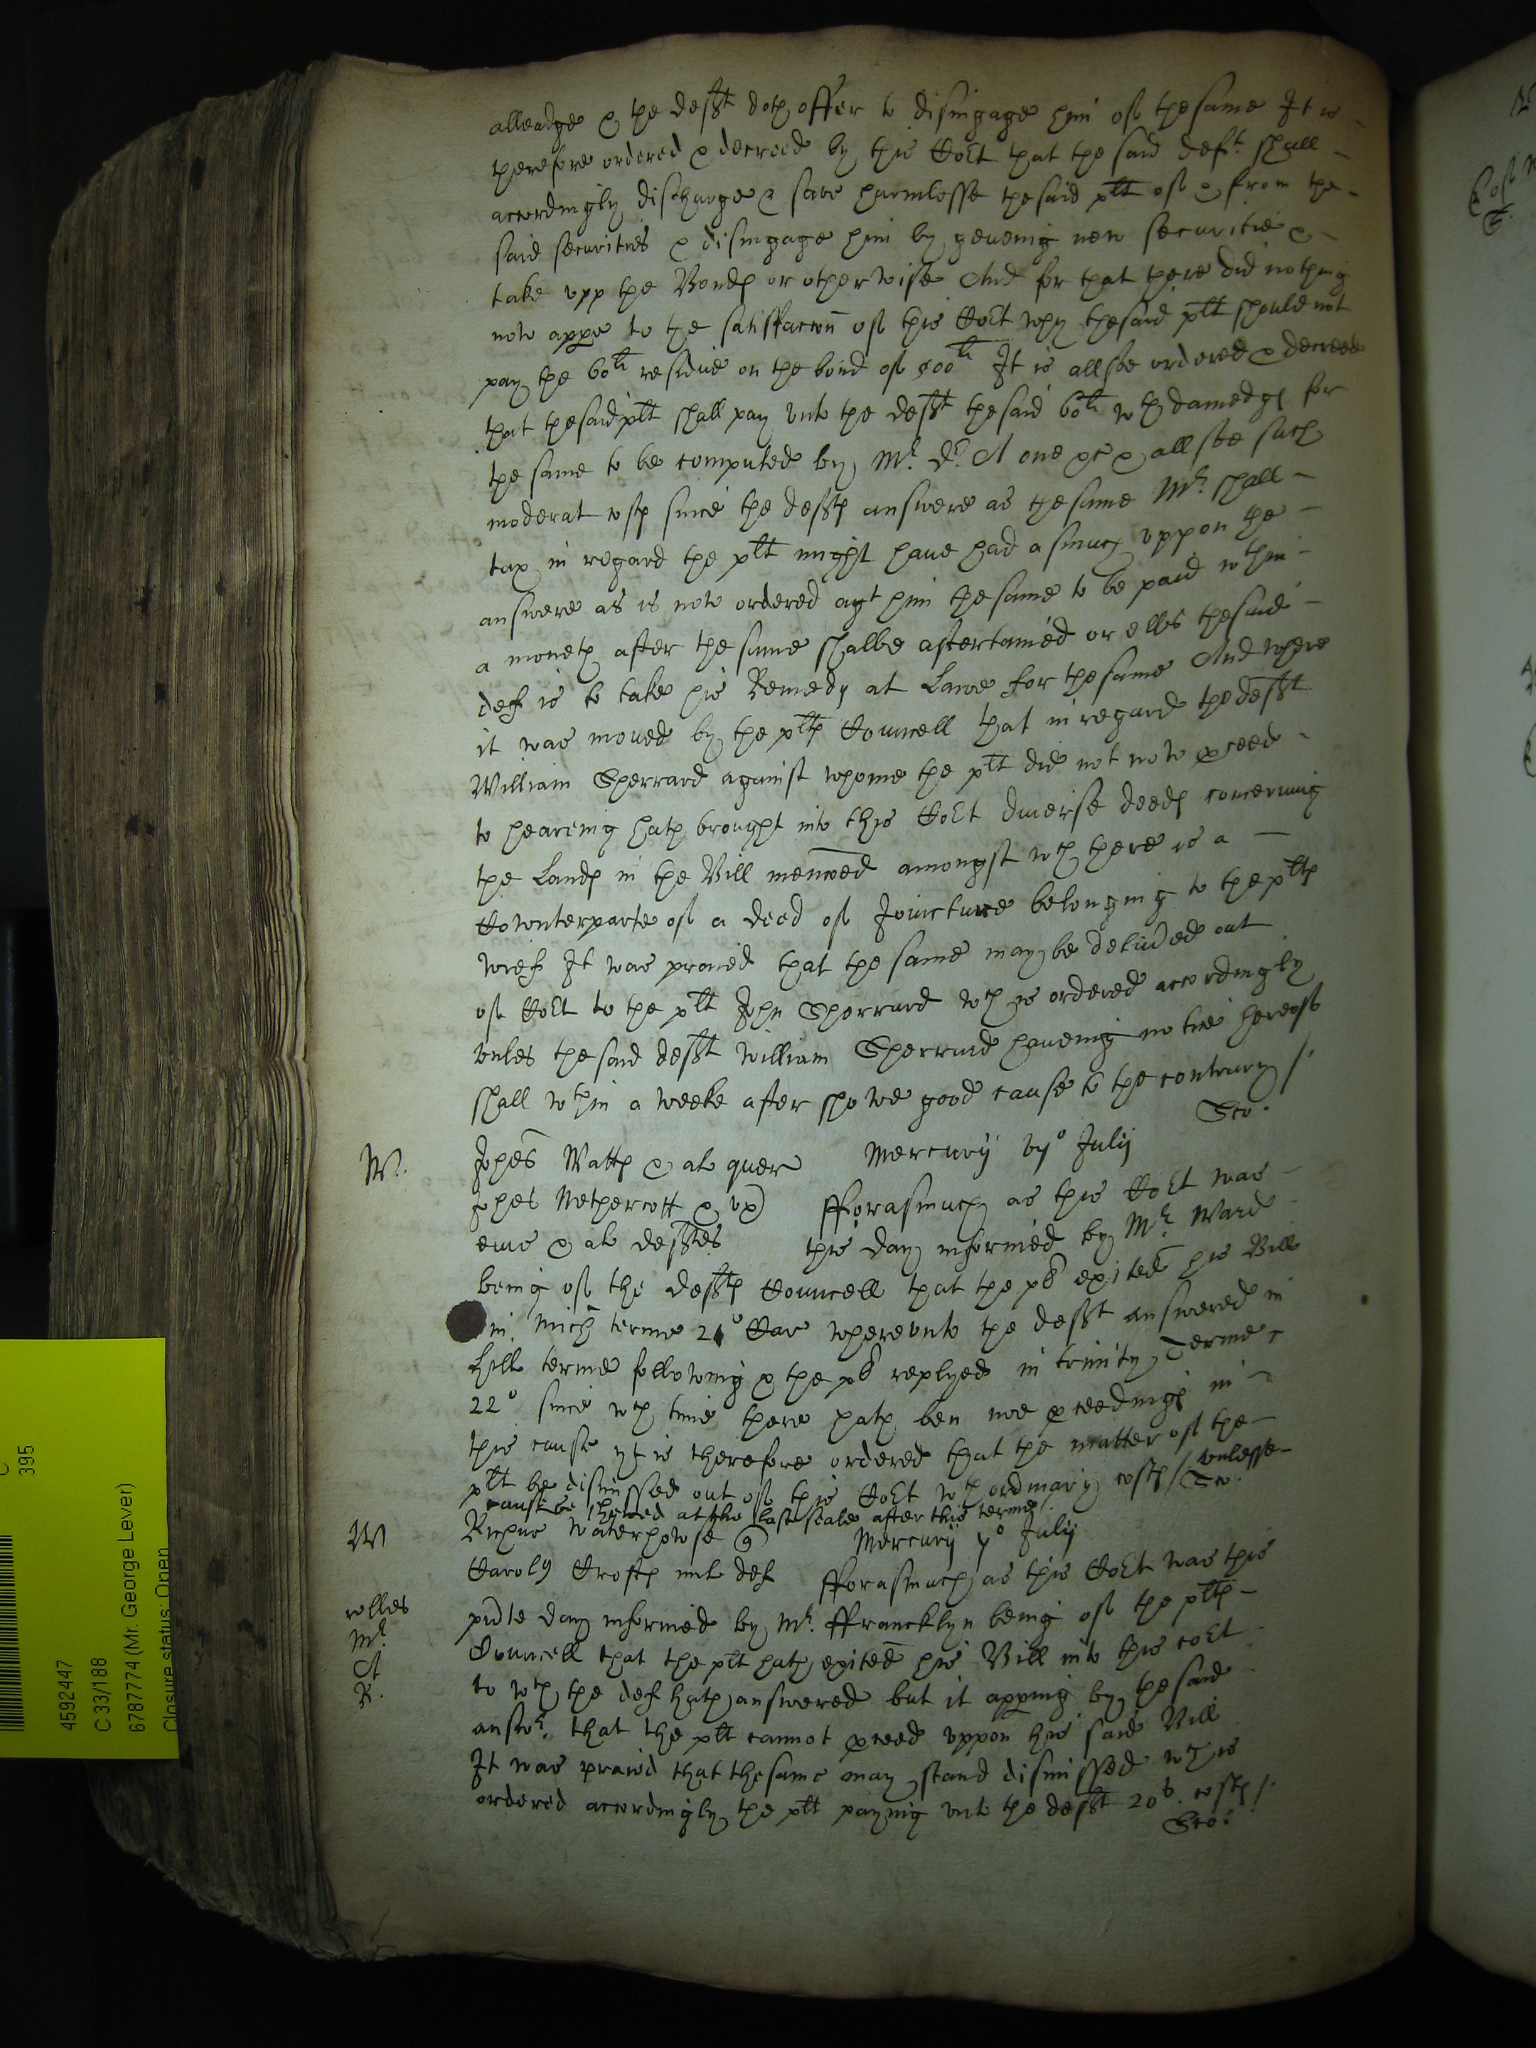 alleadge & the defft doth offer to disingage him of the same It is
therefore ordered & decreed by this Co͠rt that the said deft shall
accordingly discharge & save harmlesse the said plt of & from the
said securities & disingage him by geveing new securitie &
take vpp the Bonds or otherwise And for that there did nothing
now appe to the satisfaccon of this Co͠rt why the said plt should not
pay the 60li residue on the bond of 500li It is allsoe ordered & decreed
that the said plt shall pay vnto the defft the said 60li wth damedges for
the same to be computed by Mr Dr A one &c & allsoe such
moderat costs since the deffts answere as the same Mr shall
tax in regard the plt might have had asmuch vppon the
answere as is now ordered agt him the same to be paid wthin
a moneth after the same shalbe assertained or elles the said
def is to take his Remedy at Lawe for the same And where
it was moued by the plts Councell that in regard the defft
William Sherrard against whome the plt did not now pceed
to heareing hath brought into this Co͠rt diuerse deeds concerning
the Lands in the Bill menc͠oed amongst wch there is a
Cownterparte of a deed of Joincture belonging to the plts
wief It was praied that the same may be deliũed out
of Co͠rt to the plt John Sherrard wch is ordered accordingly
vnles the said defft William Sherrard haveing notice hereof
shall wthin a weeke after showe good cause to the contrary /
W. Johes Watts & al quer Mercurij vjo Julij
Johes Nethercott & vx Fforasmuch as this Co͠rt was
eius & al defftes this day informed by Mr Ward
being of the deffts Councell that the pl exited his Bill
in Mich terme 21o Car wherevnto the defft answered in
Hill terme following & the pl replyed in trinity Terme
22o since wch time there hath ben noe pceedings in
this cause yt is therefore ordered that the matter of the
plt be dismissed out of this Co͠rt wth ordinary costs / vnlesse
cause be shewed at the last seale after this terme
W Ricus Waterhowse q Mercurij 7o Julij
Carolus Crofts mil def Fforasmuch as this Co͠rt was this
rolles
Mr
A
R.
pn͠te day informed by Mr. Ffrancklyn being of the plts
Councell that the plt hath exited his Bill into this co͠rt
to wch the def hath answered but it apping by the said
answr. that the plt cannot pceed vppon his said Bill
It was praied that the same may stand dismissed wch is
ordered accordingly the plt paying vnto the defft 20s. costs /
4592447
C 33/188
6787774 (Mr. George Lever)
Closure status: Open
C
395